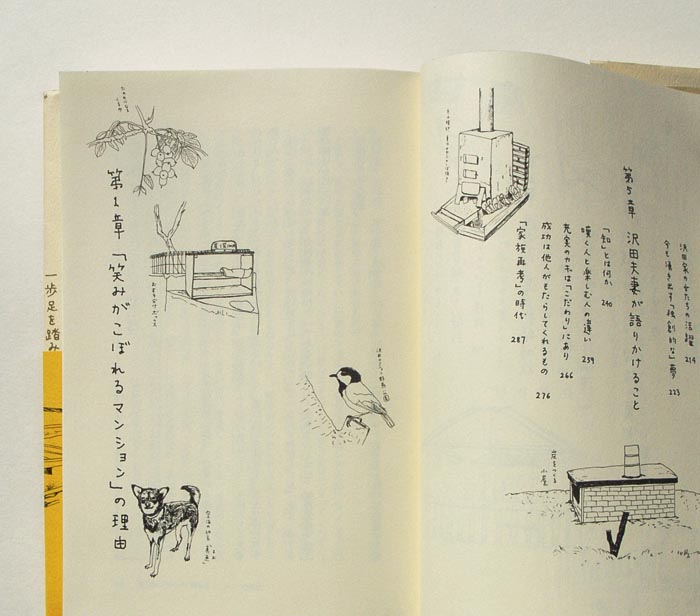 沢田家の女たちの活躍 214
今も湧き出す「独創的な」夢 223
第5章 沢田夫妻が語りかけること
「知」とは何か 240
嘆く人と楽しむ人の違い 259
充実のカネは「こだわり」にあり 266
成功は他人がもたらしてくれるもの 276
「家族再考」の時代 287
炭をつくる
小屋
第1章 「笑みがこぼれるマンション」の理由
一歩足を踏み